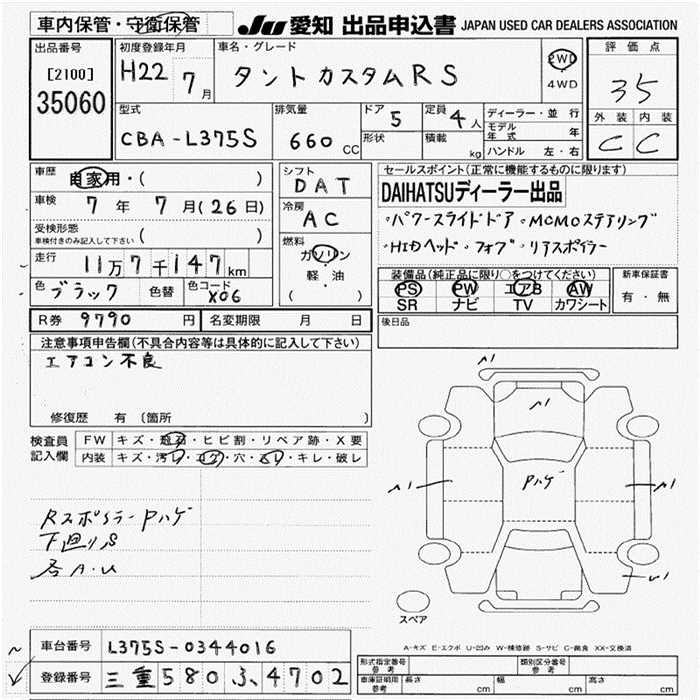 車内保管・守衛保管
JU 愛知 出品申込書 JAPAN USED CAR DEALERS ASSOCIATION
出品番号
[2100]
35060
初度登録年月
H22 7月
車名・グレード
タントカスタムRS
2WD
4WD
評価点
35
外装 内装
C C
型式
CBA-L375S
排気量
660 CC
ドア 5
形状
定員 4人
積載 kg
ディーラー・並行
モデル年式 年
ハンドル 左・右
車歴 自家用・( )
車検 7年 7月(26日)
受検形態
車検付きのみ記入して下さい ( )
走行 11万7千147km
色 ブラック 色替 色コード X06
シフト
DAT
冷房
AC
燃料
ガソリン
軽・油
( )
セールスポイント(正常に機能するものに限ります)
DAIHATSUディーラー出品
・パワースライドドア・MOMOステアリング
・HIDヘッド・フォグ・リアスポイラー
装備品(純正品に限り○をつけてください)
PS PW エアB AW
SR ナビ TV カワシート
新車保証書
有・無
R券 9790円 名変期限 月 日
後日品
注意事項申告欄(不具合内容等は具体的に記入して下さい)
エアコン不良
修復歴 有 (箇所
検査員
記入欄
FW キズ・飛石・ヒビ割・リペア跡・X要
内装 キズ・汚レ・コゲ・穴・スレ・キレ・破レ
Rスポイラー Pハゲ
下廻りS
各A・U
Pハゲ
スペア
A-キズ E-エクボ U-凹み W-補修跡 S-サビ C-腐食 XX-交換済
車台番号 L375S-0344016
登録番号 三重580ふ4702
形式指定番号
参考
類別区分番号
参考
車庫証明用
参考
長さ cm 幅 cm 高さ cm